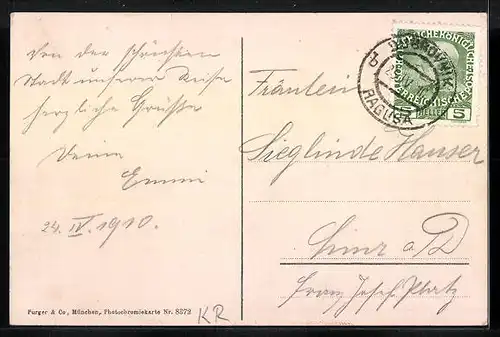 Von der schönsten
Stadt unserer Reise
herzliche Grüße
Deine
Emmi
24. IV. 1910.
Purger & Co., München, Photochromiekarte Nr. 8372
KR
Fräulein
Sieglinde Hauser
Linz a/D
Franz Josef Platz
RAGUSA
5 HELLER 5